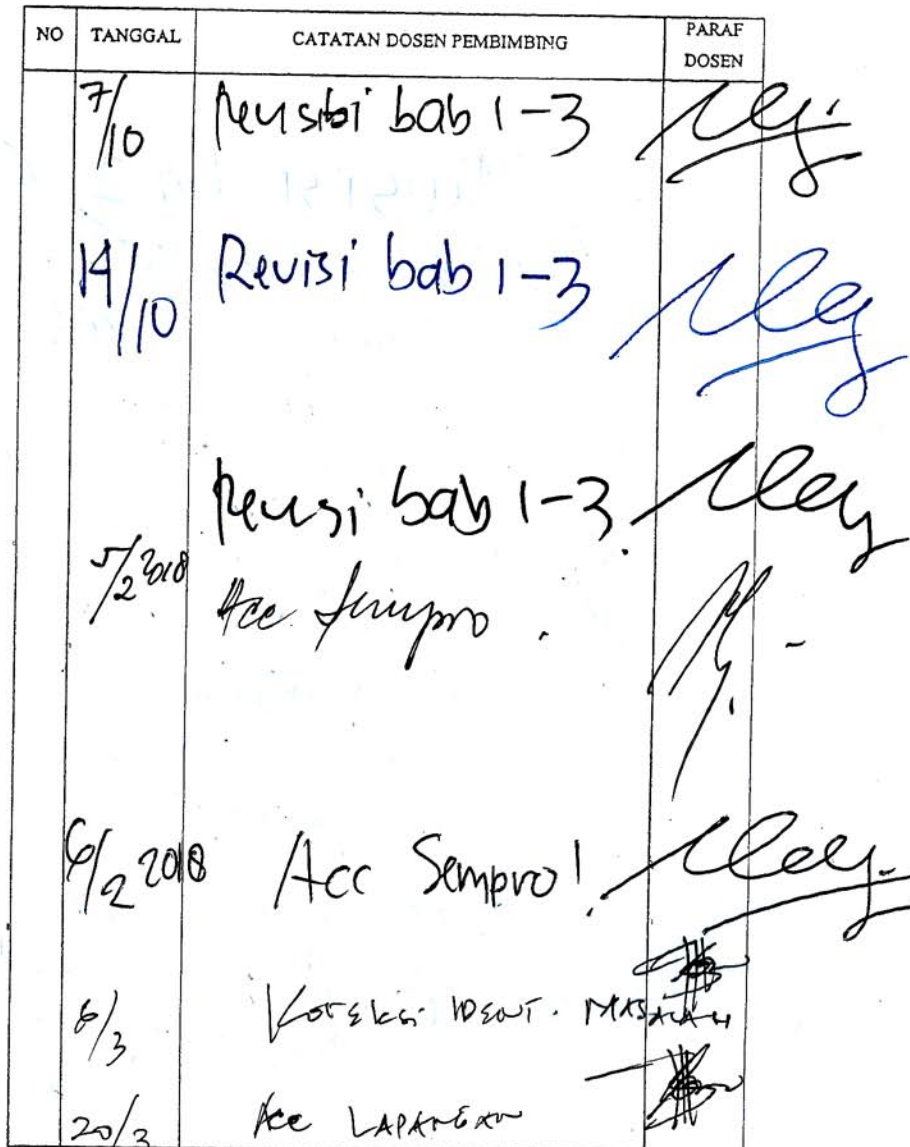 NO TANGGAL CATATAN DOSEN PEMBIMBING PARAF DOSEN
7/10 Revisi bab 1-3
14/10 Revisi bab 1-3
Revisi bab 1-3
5/2 2018 Acc Sempro.
6/2 2018 Acc Sempro!
6/3 Koreksi IDENT. MASALAH
20/3 Acc LAPANGAN